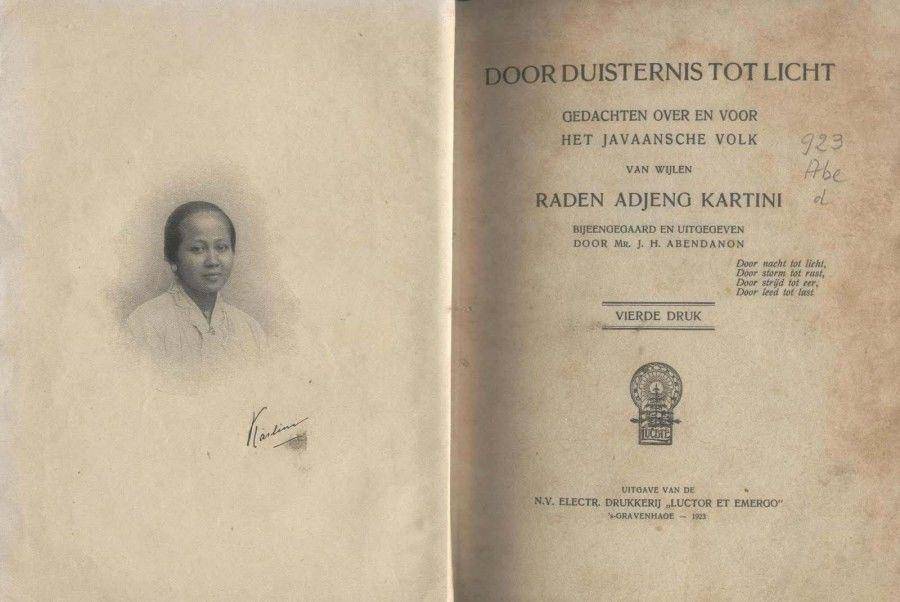 Kartini
DOOR DUISTERNIS TOT LICHT
GEDACHTEN OVER EN VOOR
HET JAVAANSCHE VOLK
VAN WIJLEN
RADEN ADJENG KARTINI
BIJEENGEGAARD EN UITGEGEVEN
DOOR Mr. J. H. ABENDANON
923
Abe
d
Door nacht tot licht,
Door storm tot rust,
Door strijd tot eer,
Door leed tot lust
VIERDE DRUK
UITGAVE VAN DE
N.V. ELECTR. DRUKKERIJ „LUCTOR ET EMERGO”
's-GRAVENHAGE — 1923